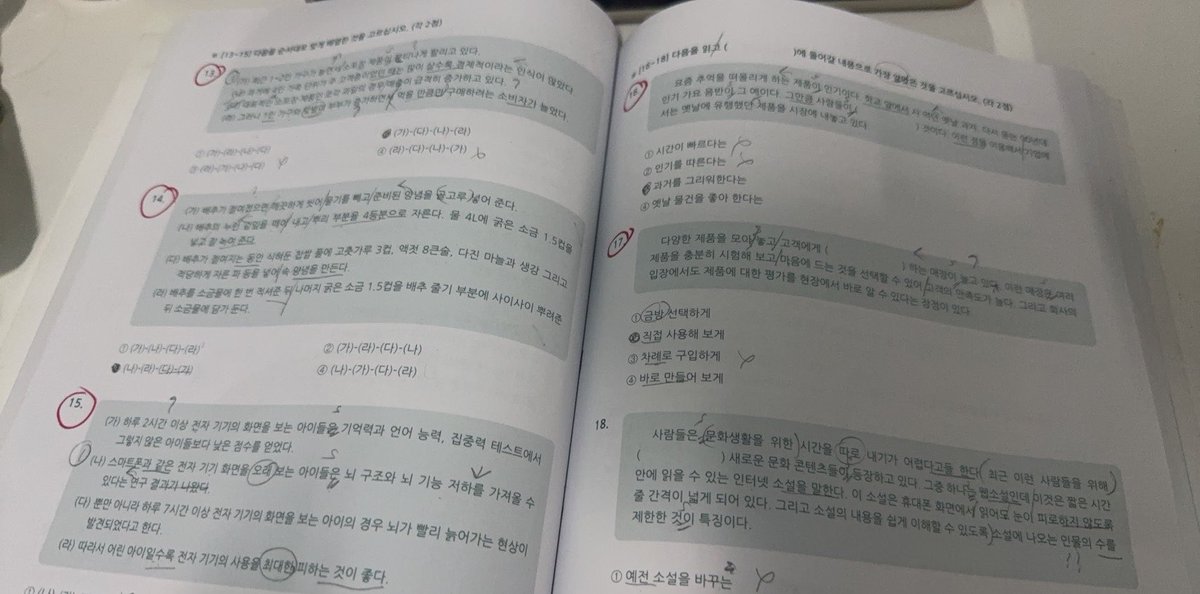 ※ [13~15] 다음을 순서대로 맞게 배열한 것을 고르십시오. (각 2점)
13.
(가) 최근 1~2인 가구가 늘면서 소포장 제품이 불티나게 팔리고 있다.
(나) 과거에 4인 가족 단위가 주 고객층이었던 때는 많이 살수록 경제적이라는 인식이 많았다.
급격히 증가하고 있다.
구매하려는 소비자가 늘었다.
(라) 그러나 1인 가구와
① (가)-(라)-(나)-(다)
(가)-(다)-(나)-(라)
③ (라)-(가)-(나)-(다)
④ (라)-(다)-(나)-(가)
14.
(가) 배추가 절여졌으면 깨끗하게 씻어 물기를 빼고 준비된 양념을 골고루 넣어 준다.
(나) 배추의 누런 겉잎을 떼어 내고 뿌리 부분을 4등분으로 자른다. 물 4L에 굵은 소금 1.5컵을
넣고 잘 녹여 준다.
(다) 배추가 절여지는 동안 식혀둔 찹쌀 풀에 고춧가루 3컵, 액젓 8큰술, 다진 마늘과 생강 그리고
적당하게 자른 파 등을 넣어 속 양념을 만든다.
(라) 배추를 소금물에 한 번 적셔준 뒤 나머지 굵은 소금 1.5컵을 배추 줄기 부분에 사이사이 뿌려준
뒤 소금물에 담가 둔다.
① (가)-(나)-(다)-(라)
② (가)-(라)-(다)-(나)
(나)-(라)-(다)-(가)
④ (나)-(가)-(다)-(라)
15.
(가) 하루 2시간 이상 전자 기기의 화면을 보는 아이들을 기억력과 언어 능력, 집중력 테스트에서
그렇지 않은 아이들보다 낮은 점수를 얻었다.
(나) 스마트폰과 같은 전자 기기 화면을 오래 보는 아이들은 뇌 구조와 뇌 기능 저하를 가져올 수
있다는 연구 결과가 나왔다.
(다) 뿐만 아니라 하루 7시간 이상 전자 기기의 화면을 보는 아이의 경우 뇌가 빨리 늙어가는 현상이
발견되었다고 한다.
(라) 따라서 어린 아이일수록 전자 기기의 사용을 최대한 피하는 것이 좋다.
※ [16~18] 다음을 읽고 ( )에 들어갈 내용으로 가장 알맞은 것을 고르십시오. (각 2점)
16.
요즘 추억을 떠올리게 하는 제품이 인기이다. 학교 앞에서 사 먹던 옛날 과자, 다시 듣는 90년대
인기 가요 음반이 그 예이다. 그만큼 사람들이 ( ) 것이다. 이런 점을 이용해서 기업에
서는 옛날에 유행했던 제품을 시장에 내놓고 있다.
① 시간이 빠르다는
② 인기를 따른다는
과거를 그리워한다는
④ 옛날 물건을 좋아 한다는
17.
다양한 제품을 모아 놓고 고객에게 ( ) 하는 매장이 늘고 있다. 이런 매장은 여러
제품을 충분히 시험해 보고 마음에 드는 것을 선택할 수 있어 고객의 만족도가 높다. 그리고 회사의
입장에서도 제품에 대한 평가를 현장에서 바로 알 수 있다는 장점이 있다.
① 금방 선택하게
② 직접 사용해 보게
③ 차례로 구입하게
④ 바로 만들어 보게
18.
사람들은 문화생활을 위한 시간을 따로 내기가 어렵다고들 한다. 최근 이런 사람들을 위해
( ) 새로운 문화 콘텐츠들이 등장하고 있다. 그중 하나는 웹소설인데 이것은 짧은 시간
안에 읽을 수 있는 인터넷 소설을 말한다. 이 소설은 휴대폰 화면에서 읽어도 눈이 피로하지 않도록
줄 간격이 넓게 되어 있다. 그리고 소설의 내용을 쉽게 이해할 수 있도록 소설에 나오는 인물의 수를
제한한 것이 특징이다.
① 예전 소설을 바꾸는